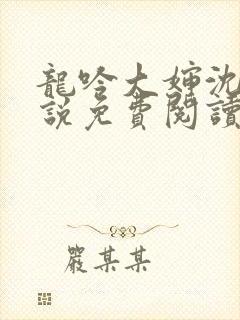 龍吟大嬸沈
說免費閱讀
嚴某某